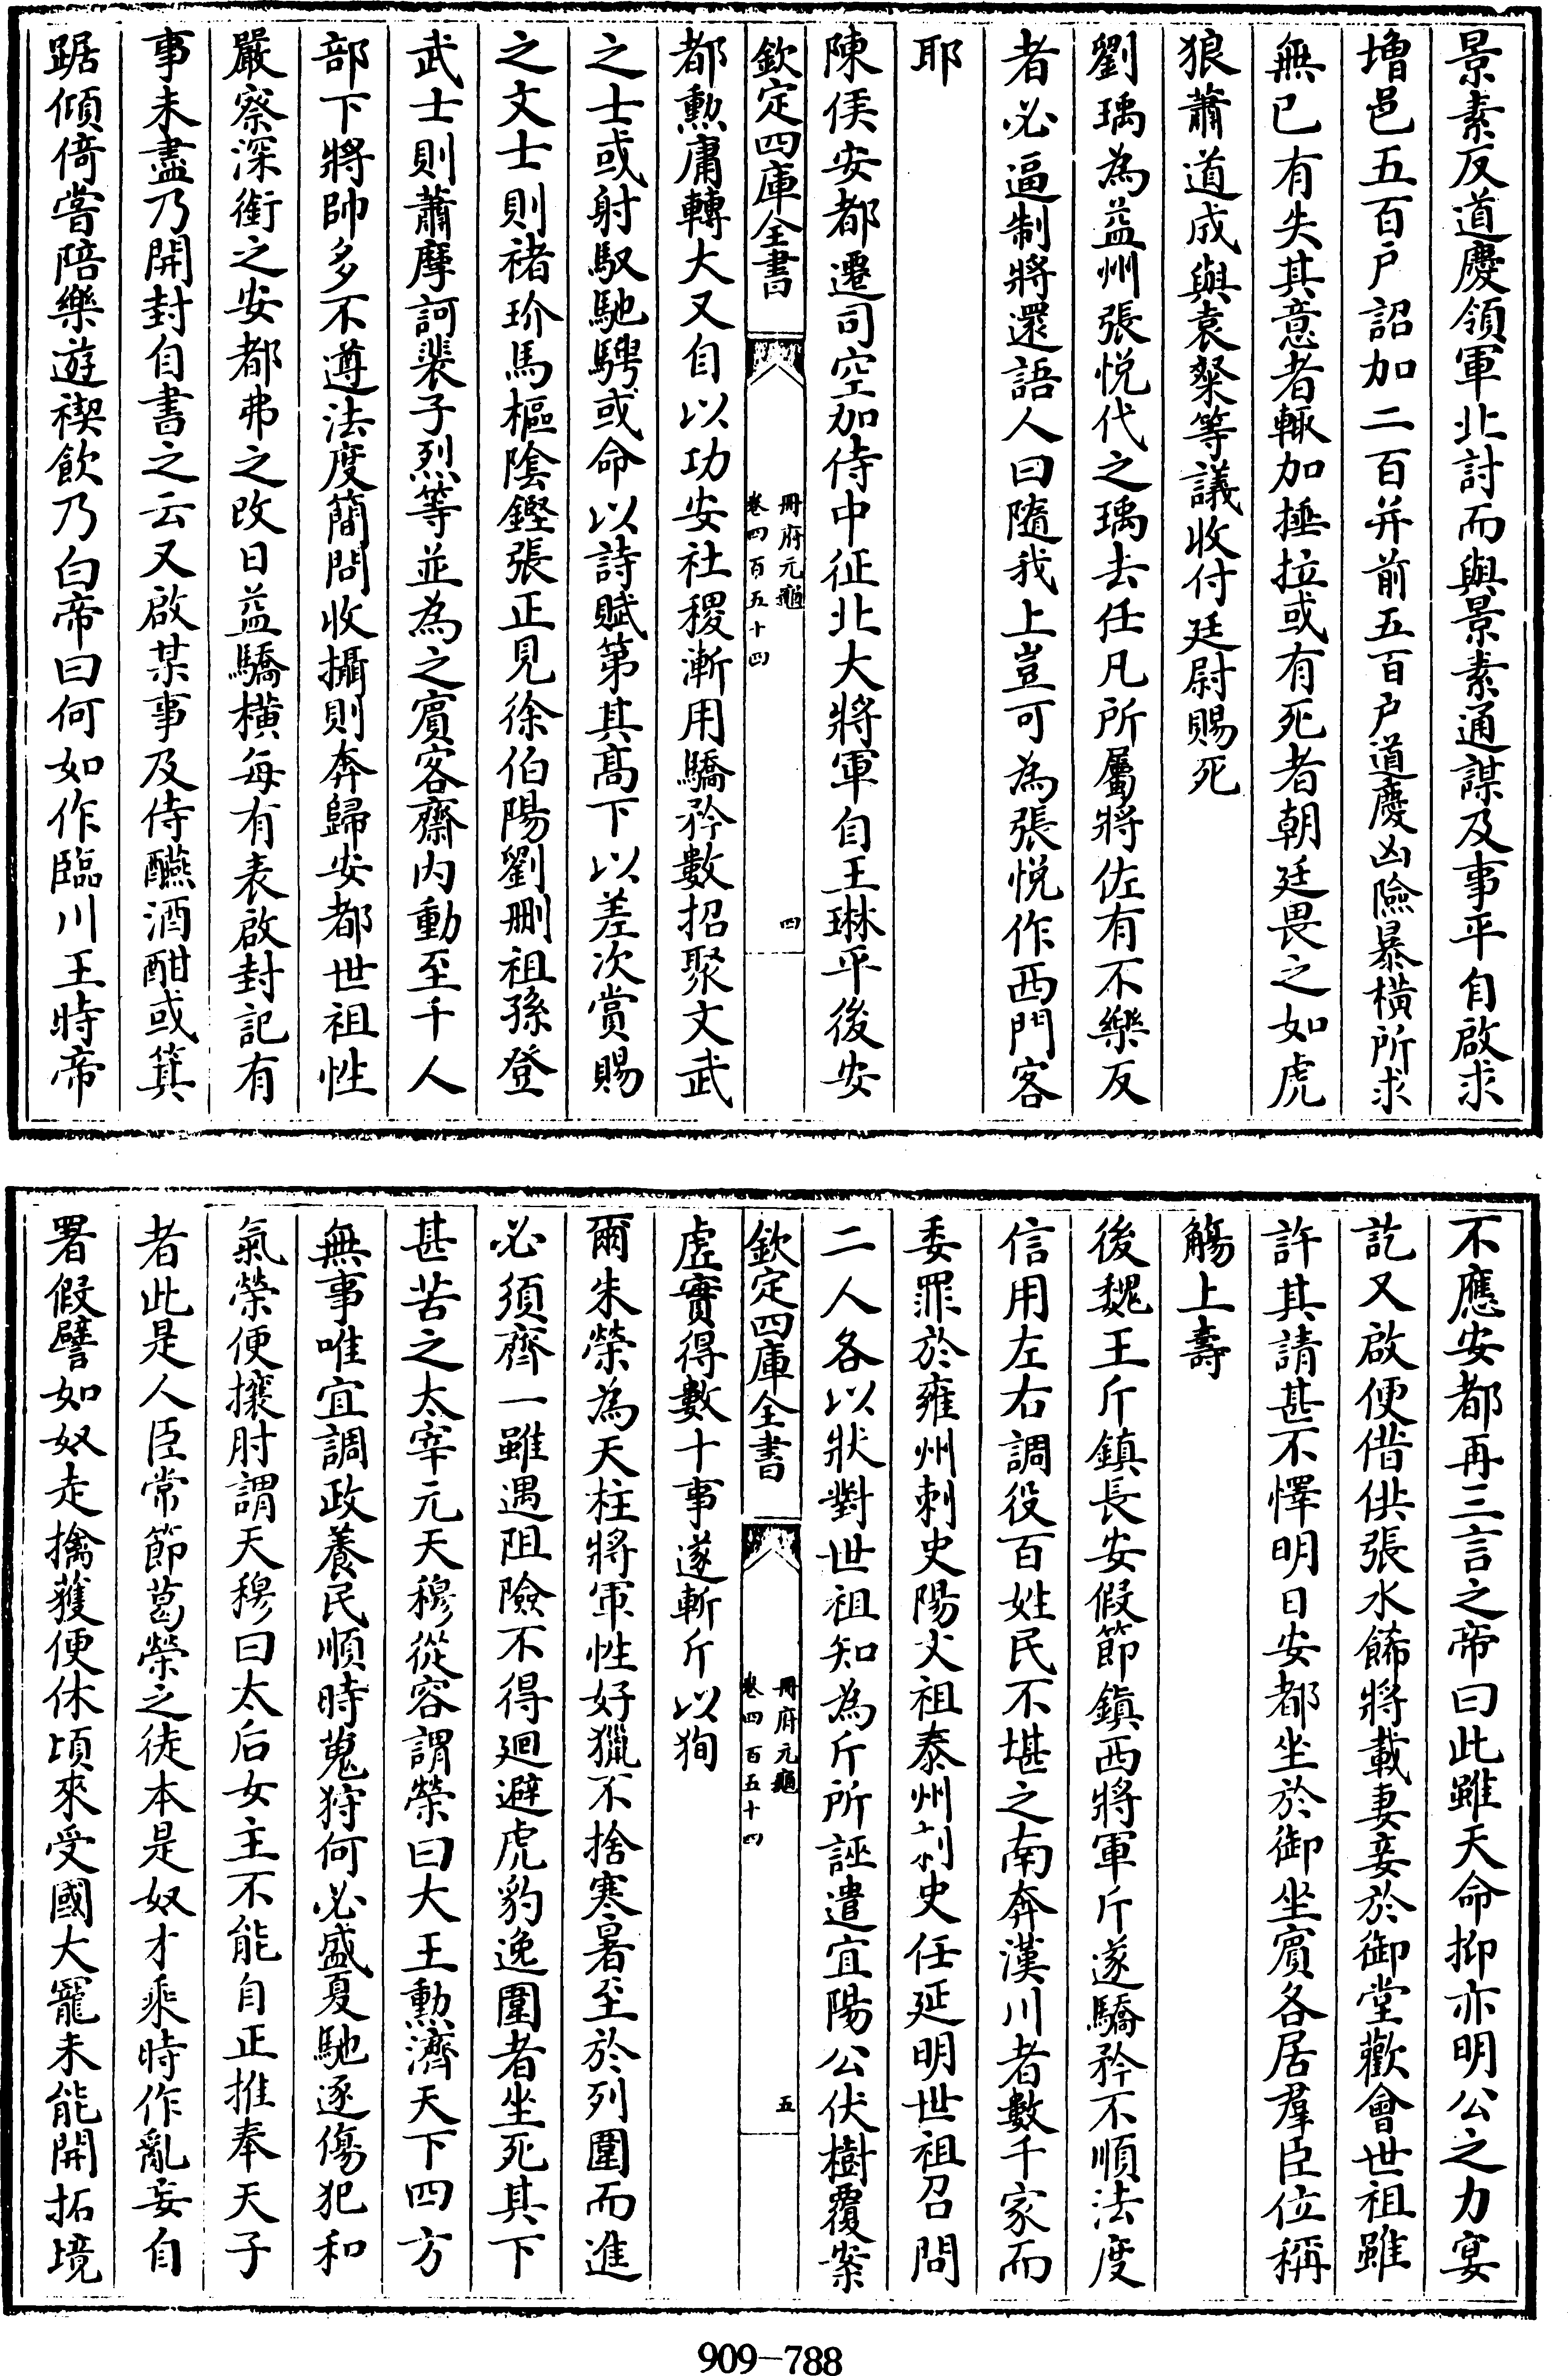 景素反道慶領軍北討而與景素通謀及事平自啟求
增邑五百戸詔加二百并前五百戸道慶凶險暴橫所求
無已有失其意者輙加捶拉或有死者朝廷畏之如虎
狼蕭道成與袁粲等議收付廷尉賜死
劉瑀為益州張悅代之瑀去任凡所屬將佐有不樂反
者必逼制將還語人曰隨我上豈可為張悅作西門客
耶
陳侯安都遷司空加侍中征北大將軍自王琳平後安
欽定四庫全書
冊府元龜
卷四百五十四
四
都勲庸轉大又自以功安社稷漸用驕矜數招聚文武
之士或射馭馳騁或命以詩賦第其高下以差次賞賜
之文士則褚玠馬樞陰鏗張正見徐伯陽劉刪祖孫登
武士則蕭摩訶裴子烈等並為之賓客齋内動至千人
部下將帥多不遵法度簡問收攝則奔歸安都世祖性
嚴察深銜之安都弗之改日益驕橫每有表啟封記有
事未盡乃開封自書之云又啟某事及侍醼酒酣或箕
踞傾倚嘗陪樂遊禊飲乃白帝曰何如作臨川王時帝
不應安都再三言之帝曰此雖天命抑亦明公之力宴
訖又啟便借供張水餙將載妻妾於御堂歡會世祖雖
許其請甚不懌明日安都坐於御坐賓各居羣臣位稱
觴上壽
後魏王斤鎮長安假節鎮西將軍斤遂驕矜不順法度
信用左右調役百姓民不堪之南奔漢川者數千家而
委罪於雍州刺史陽文祖秦州刺史任延明世祖召問
二人各以狀對世祖知為斤所誣遣宜陽公伏樹覆案
欽定四庫全書
冊府元龜
卷四百五十四
五
虛實得數十事遂斬斤以狥
爾朱榮為天柱將軍性好獵不捨寒暑至於列圍而進
必須齊一雖遇阻險不得廻避虎豹逸圍者坐死其下
甚苦之太宰元天穆從容謂榮曰大王勲濟天下四方
無事唯宜調政養民順時蒐狩何必盛夏馳逐傷犯和
氣榮便攘肘謂天穆曰太后女主不能自正推奉天子
者此是人臣常節葛榮之徒本是奴才乘時作亂妄自
署假譬如奴走擒獲便休頃來受國大寵未能開拓境
909-788